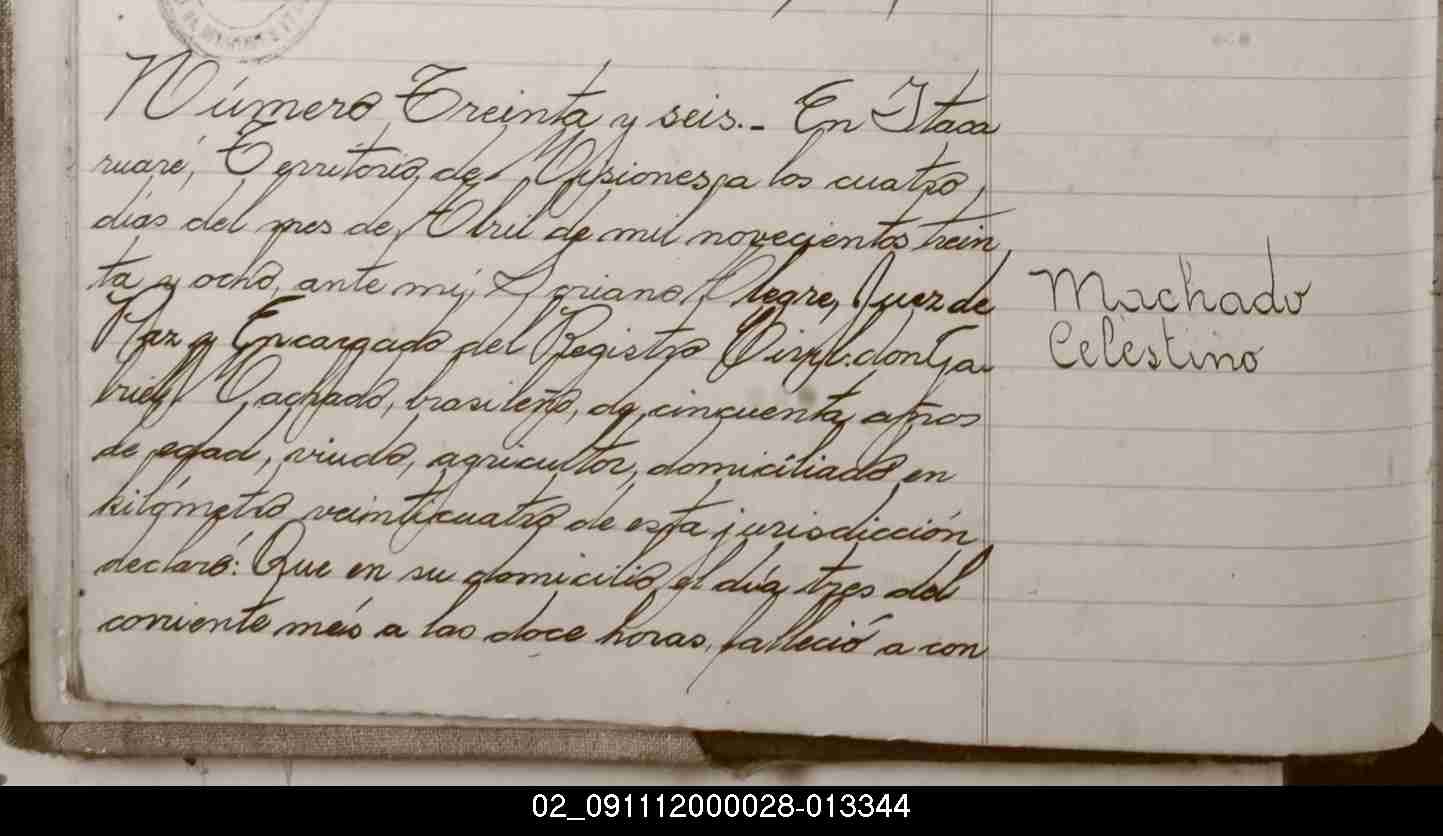 Número Treinta y seis.- En Itaca
ruaré, Territorio de Misiones, a los cuatro
días del mes de Abril de mil novecientos trein
ta y ocho, ante mí, Soriano Alegre, Juez de
Paz y Encargado del Registro Civil: don Ga
briel Machado, brasileño, de cincuenta años
de edad, viudo, agricultor, domiciliado en
kilómetro veinticuatro de esta jurisdicción
declaró: Que en su domicilio, el día tres del
corriente més a las doce horas, falleció a con
Machado
Celestino
02_091112000028-013344